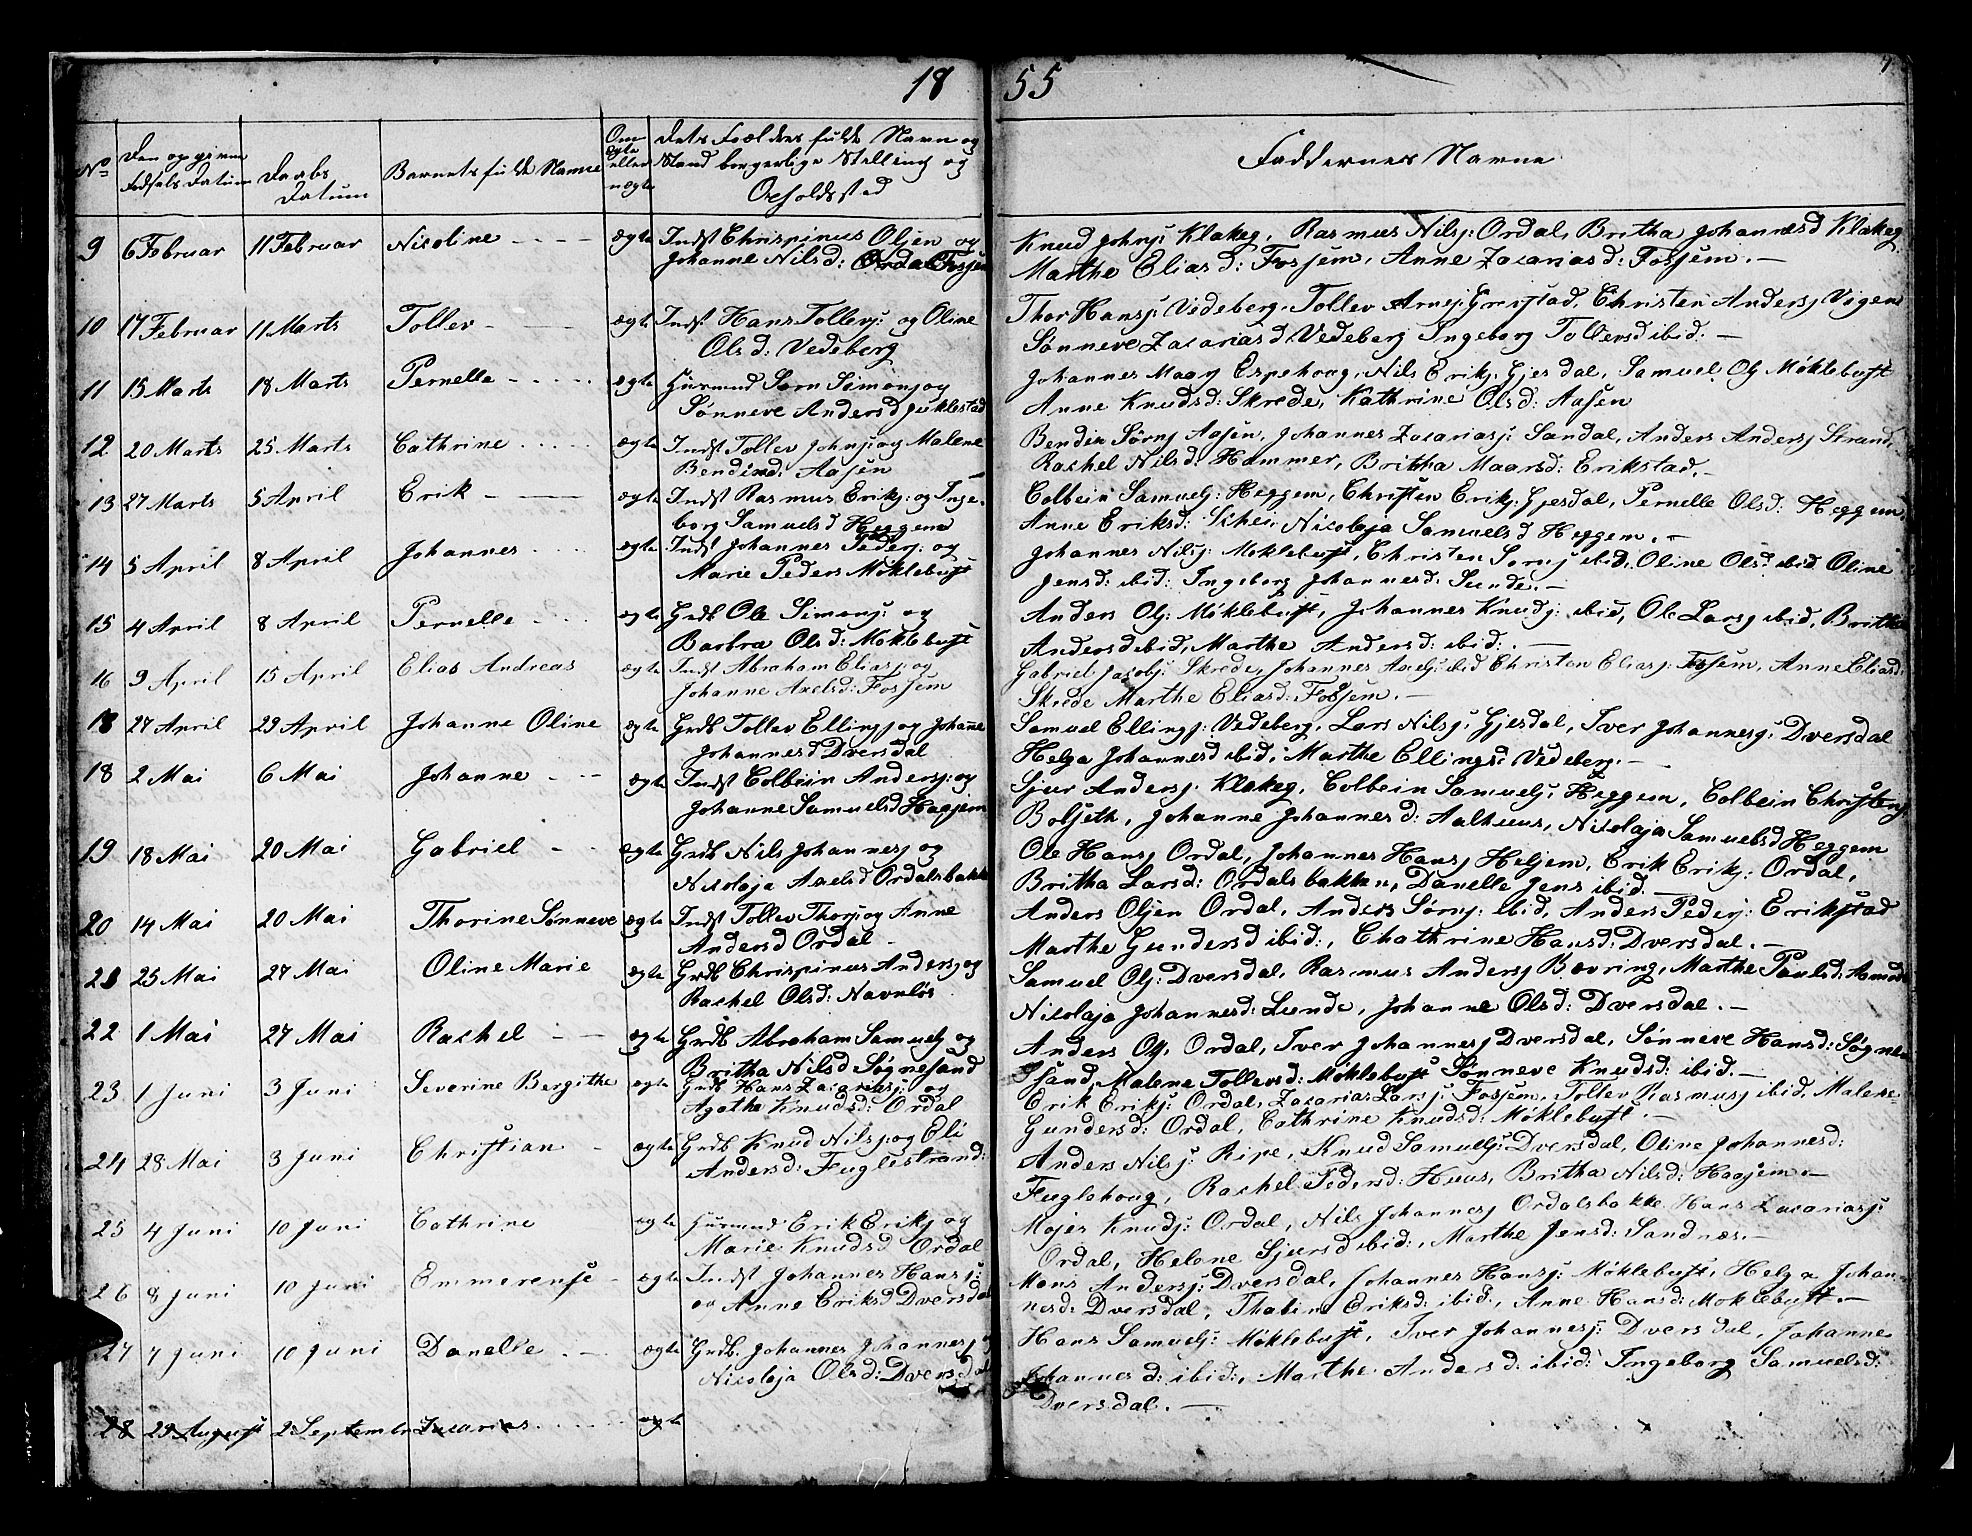 1855
7
No
Den opgivne Fødsels Datum
Daabs Datum
Barnets fulde Navne
Om ægte eller uægte
Dets Forældres fulde Navn og Stand borgerlige Stilling og Opholdssted
Faddernes Navne
9 6 Februar 11 Februar Nicoline ægte Indst Chrispinus Olsen og
Johanne Nilsd: Fosjem
Knud Johnsj: Klakeg, Rasmus Nilsj: Ordal, Britha Johannesd Klakeg
Marthe Eliasd: Fosjem, Anne Zacariasd: Fosjem.
10 17 Februar 11 Marts Tollev ægte Indst Hans Tollevsj: og Oline
Olsd: Vedeberg
Thor Hansj: Vedeberg, Tollev Arnesj: Grepstad, Christen Andersj Vigene
Sønneve Zacariasd Vedeberg Ingeborg Tollevsd ibid:
11 15 Marts 18 Marts Pernelle ægte Huusmd Sørn Simonsj og
Sønneve Andersd Juklestad
Johannes Maarsj Espehoug, Nils Eriksj: Gjesdal, Samuel Olsj Møklebust
Anne Knudsd: Skrede, Kathrine Olsd: Aasen
12 20 Marts 25 Marts Cathrine ægte Indst Tollev Johnsj og Malene
Bendixd: Aasen
Bendix Sørnsj Aasen, Johannes Zacariasj: Sandal, Anders Andersj Strand,
Rachel Nilsd: Hammer, Britha Maarsd: Erikstad.
13 27 Marts 5 April Erik ægte Indst Rasmus Eriksj: og Inge-
borg Samuelsd Heggem
Colbein Samuelsj: Heggem, Christen Eriksj: Gjesdal, Pernelle Olsd: Heggem,
Anne Eriksd: Skhei, Nicolaja Samuelsd Heggem.
14 5 April 8 April Johannes ægte Indst Johannes Pedersj: og
Marie Peders Møklebust
Johannes Nilsj: Møklebust, Christen Sørnsj ibid, Oline Olsd: ibid Oline
Jensd: ibid: Ingeborg Johannesd: Sunde.
15 4 April 8 April Pernelle ægte Grdb Ole Simonsj: og
Barbra Olsd: Møklebust
Anders Olsj: Møklebust, Johannes Knudsj: ibid, Ole Larsj ibid, Britha
Andersd ibid, Marthe Andersd: ibid:
16 9 April 15 April Elias Andreas ægte Indst Abraham Eliasj: og
Johanne Axelsd: Fosjem
Gabriel Jacobsj: Skrede, Johannes Axelsj: ibid Christen Eliasj: Fosjem, Anne Eliasd:
Skrede Marthe Eliasd: Fosjem.
18 27 April 29 April Johanne Oline ægte Grdb Tollev Ellingsj og Johanne
Johannesd Dversdal
Samuel Ellingsj: Vedeberg, Lars Nilsj: Gjesdal, Iver Johannesj: Dversdal
Helga Johannesd ibid: Marthe Ellingsd: Vedeberg.
18 2 Mai 6 Mai Johanne ægte Indst Colbein Andersj: og
Johanne Samuelsd Haajem
Sjur Andersj: Klakeg, Colbein Samuelsj: Heggem, Colbein Christensj
Bolseth, Johanne Johannesd: Aalhuus, Nicolaja Samuelsd Heggem
19 18 Mai 20 Mai Gabriel ægte Grdb Nils Johannesj og
Nicolaja Axelsd Ordalsbakke
Ole Hansj Ordal, Johannes Hansj Heljem, Erik Eriksj: Ordal,
Britha Larsd: Ordalsbakken, Danelle Jens ibid.
20 14 Mai 20 Mai Thorine Sønneve ægte Indst Tollev Thorsj og Anne
Andersd Ordal
Anders Olsen Ordal, Anders Sørnsj: ibid, Anders Pedersj: Erikstad
Marthe Gundersd ibid:, Chathrine Hansd: Dversdal.
21 25 Mai 27 Mai Oline Marie ægte Grdb Chrispinus Andersj og
Rachel Olsd: Navnløs
Samuel Olsj: Dversdal, Rasmus Andersj Bævring, Marthe Paulsd:
Nicolaja Johannesd: Sunde, Johanne Olsd: Dversdal.
22 1 Mai 27 Mai Rachel ægte Grdb Abraham Samuelsj og
Britha Nilsd Søgnesand
Anders Olsj. Ordal, Iver Johannesj Dversdal, Sønneve Hansd: Søgne-
sand, Malene Tollevsd: Møklebust Sønneve Knudsd: ibid.
23 1 Juni 3 Juni Severine Bergithe ægte Grdb Hans Zacariasj: og
Agatha Knudsd: Ordal
Erik Eriksj: Ordal, Zacarias Larsj: Fosjem, Tollev Rasmusj ibid, Malene
Gundersd: Ordal, Cathrine Knudsd: Møklebust.
24 28 Mai 3 Juni Christian ægte Grdb Knud Nilsj og Eli
Andersd: Fuglestrand:
Anders Nilsj: Ripe, Knud Samuelsj: Dversdal, Oline Johannesd:
Fuglehoug, Rachel Pedersd: Huus, Britha Nilsd: Haajem
25 4 Juni 10 Juni Cathrine ægte Huusmd Erik Eriksj og
Marie Knudsd Ordal
Mojes Knudsj: Ordal, Nils Johannesj Ordalsbakke Hans Zacariasj:
Ordal, Helene Sjursd ibid:, Marthe Jensd: Sandnæs.
26 8 Juni 10 Juni Emmerense ægte Indst Johannes Hansj:
og Anne Eriksd Dversdal
Mons Andersj: Dversdal, Johannes Hansj: Møklebust, Helga Johan-
nesd: Dversdal, Thabine Eriksd: ibid:, Anne Hansd: Møklebust.
27 7 Juni 10 Juni Danelle ægte Grdb. Johannes Johannesj og
Nicolaja Olsd: Dversdal
Hans Samuelsj: Møklebust, Iver Johannesj: Dversdal, Johanne
Johannesd: ibid:, Marthe Andersd: ibid: Ingeborg Samuelsd:
Dversdal.
28 29 August 2 Septembr Zacarias ægte